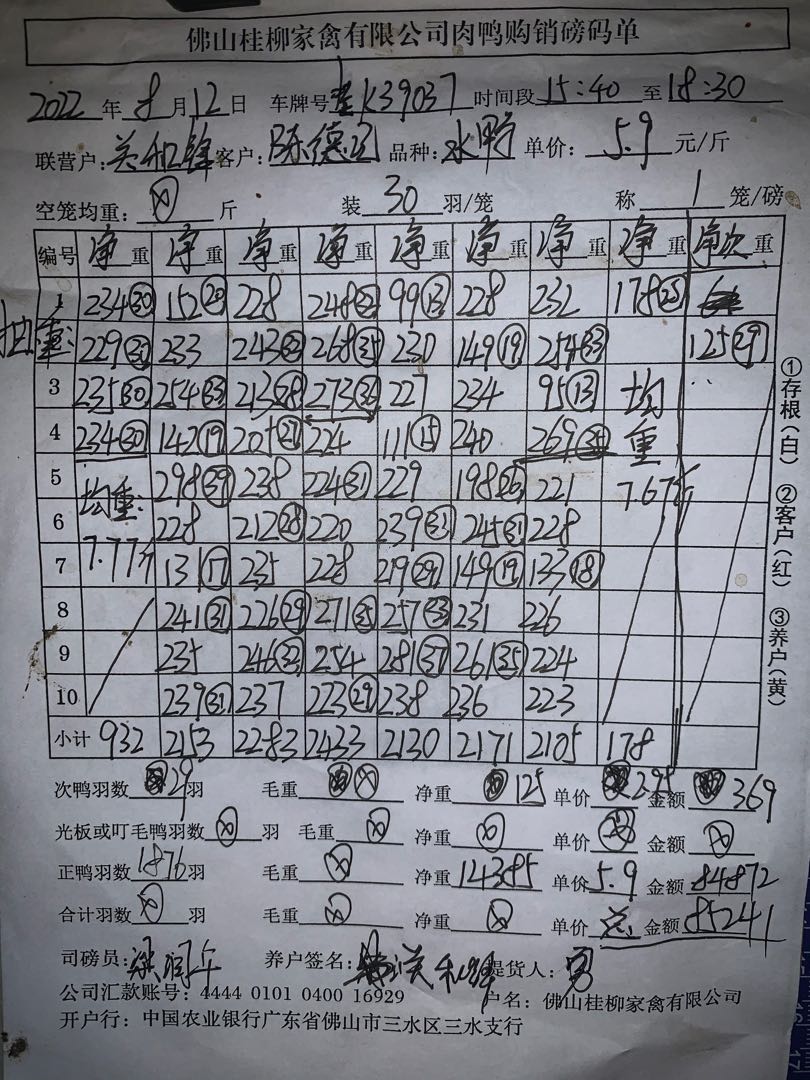 佛山桂柳家禽有限公司肉鸭购销磅码单
2022 年 8 月 12 日 车牌号 K39037 时间段 15:40 至 18:30
联营户: 客户: 陈德 品种: 水鸭 单价: 5.9 元/斤
空笼均重: ⊗ 斤 装 30 羽/笼 称 1 笼/磅
编号 净重 净重 净重 净重 净重 净重 净重 净重 净次重
1 234㉚ 152⑳ 228 248 99⑬ 228 232 178
抽重: 229㉚ 233 243 268㉟ 230 149⑲ 254㉝ 125㉙
3 235㉚ 254㉝ 213㉘ 273㊱ 227 234 95⑬ 均
4 234㉚ 142⑲ 224 111⑮ 240 269 重
5 均重: 298㊴ 238 224㉛ 229 198㉖ 221 7.67斤
6 228 212㉘ 220 239 245㉛ 228
7 7.77斤 131⑰ 235 228 219㉙ 149⑲ 133⑱
8 241㉛ 226㉙ 271㉟ 257㉝ 231 226
9 235 246㉜ 254 281㊲ 261㉟ 224
10 239㉛ 237 223㉙ 238 236 223
小计 932 2153 2283 2433 2130 2171 2105 178
次鸭羽数 29 羽 毛重 ⊗ 净重 125 单价 2.95 金额 369
光板或叮毛鸭羽数 ⊗ 羽 毛重 ⊗ 净重 ⊗ 单价 ⊗ 金额 ⊗
正鸭羽数 1876 羽 毛重 ⊗ 净重 14385 单价 5.9 金额 84872
合计羽数 ⊗ 羽 毛重 ⊗ 净重 ⊗ 单价 总 金额 85241
司磅员: 养户签名: 提货人:
公司汇款账号: 4444 0101 0400 16929 户名: 佛山桂柳家禽有限公司
开户行: 中国农业银行广东省佛山市三水区三水支行
①存根(白) ②客户(红) ③养户(黄)